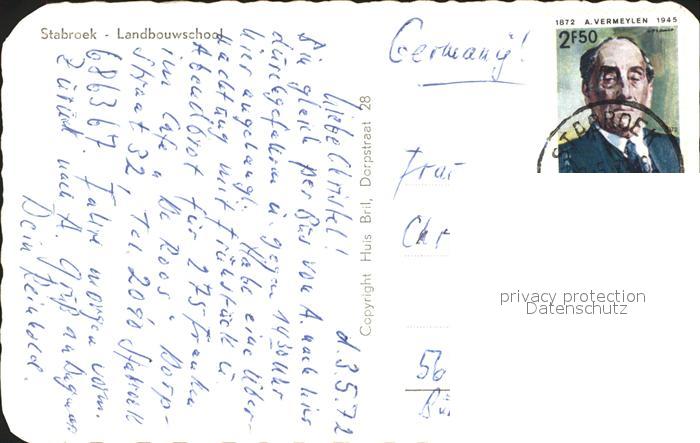 Stabroek - Landbouwschool
1872 A. VERMEYLEN 1945
2F50
STABROEK
Germany!
Copyright Huis Bril, Dorpstraat 28
d. 3.5.72
Liebe Christel!
Bin gleich per Bus von A. nach hier
durchgefahren u. gegen 14.30 Uhr
hier angelangt. Habe eine Über-
nachtung mit Frühstück u.
Abendbrot für 275 Franken
im Cafe „De Roos“ Dorp-
straat 32, Tel. 2090 Stabroek
686367. Fahre morgen vorm.
zurück nach A. Gruß an Dagmar
Dein Reinhold.
Frau
Chr
56
privacy protection
Datenschutz